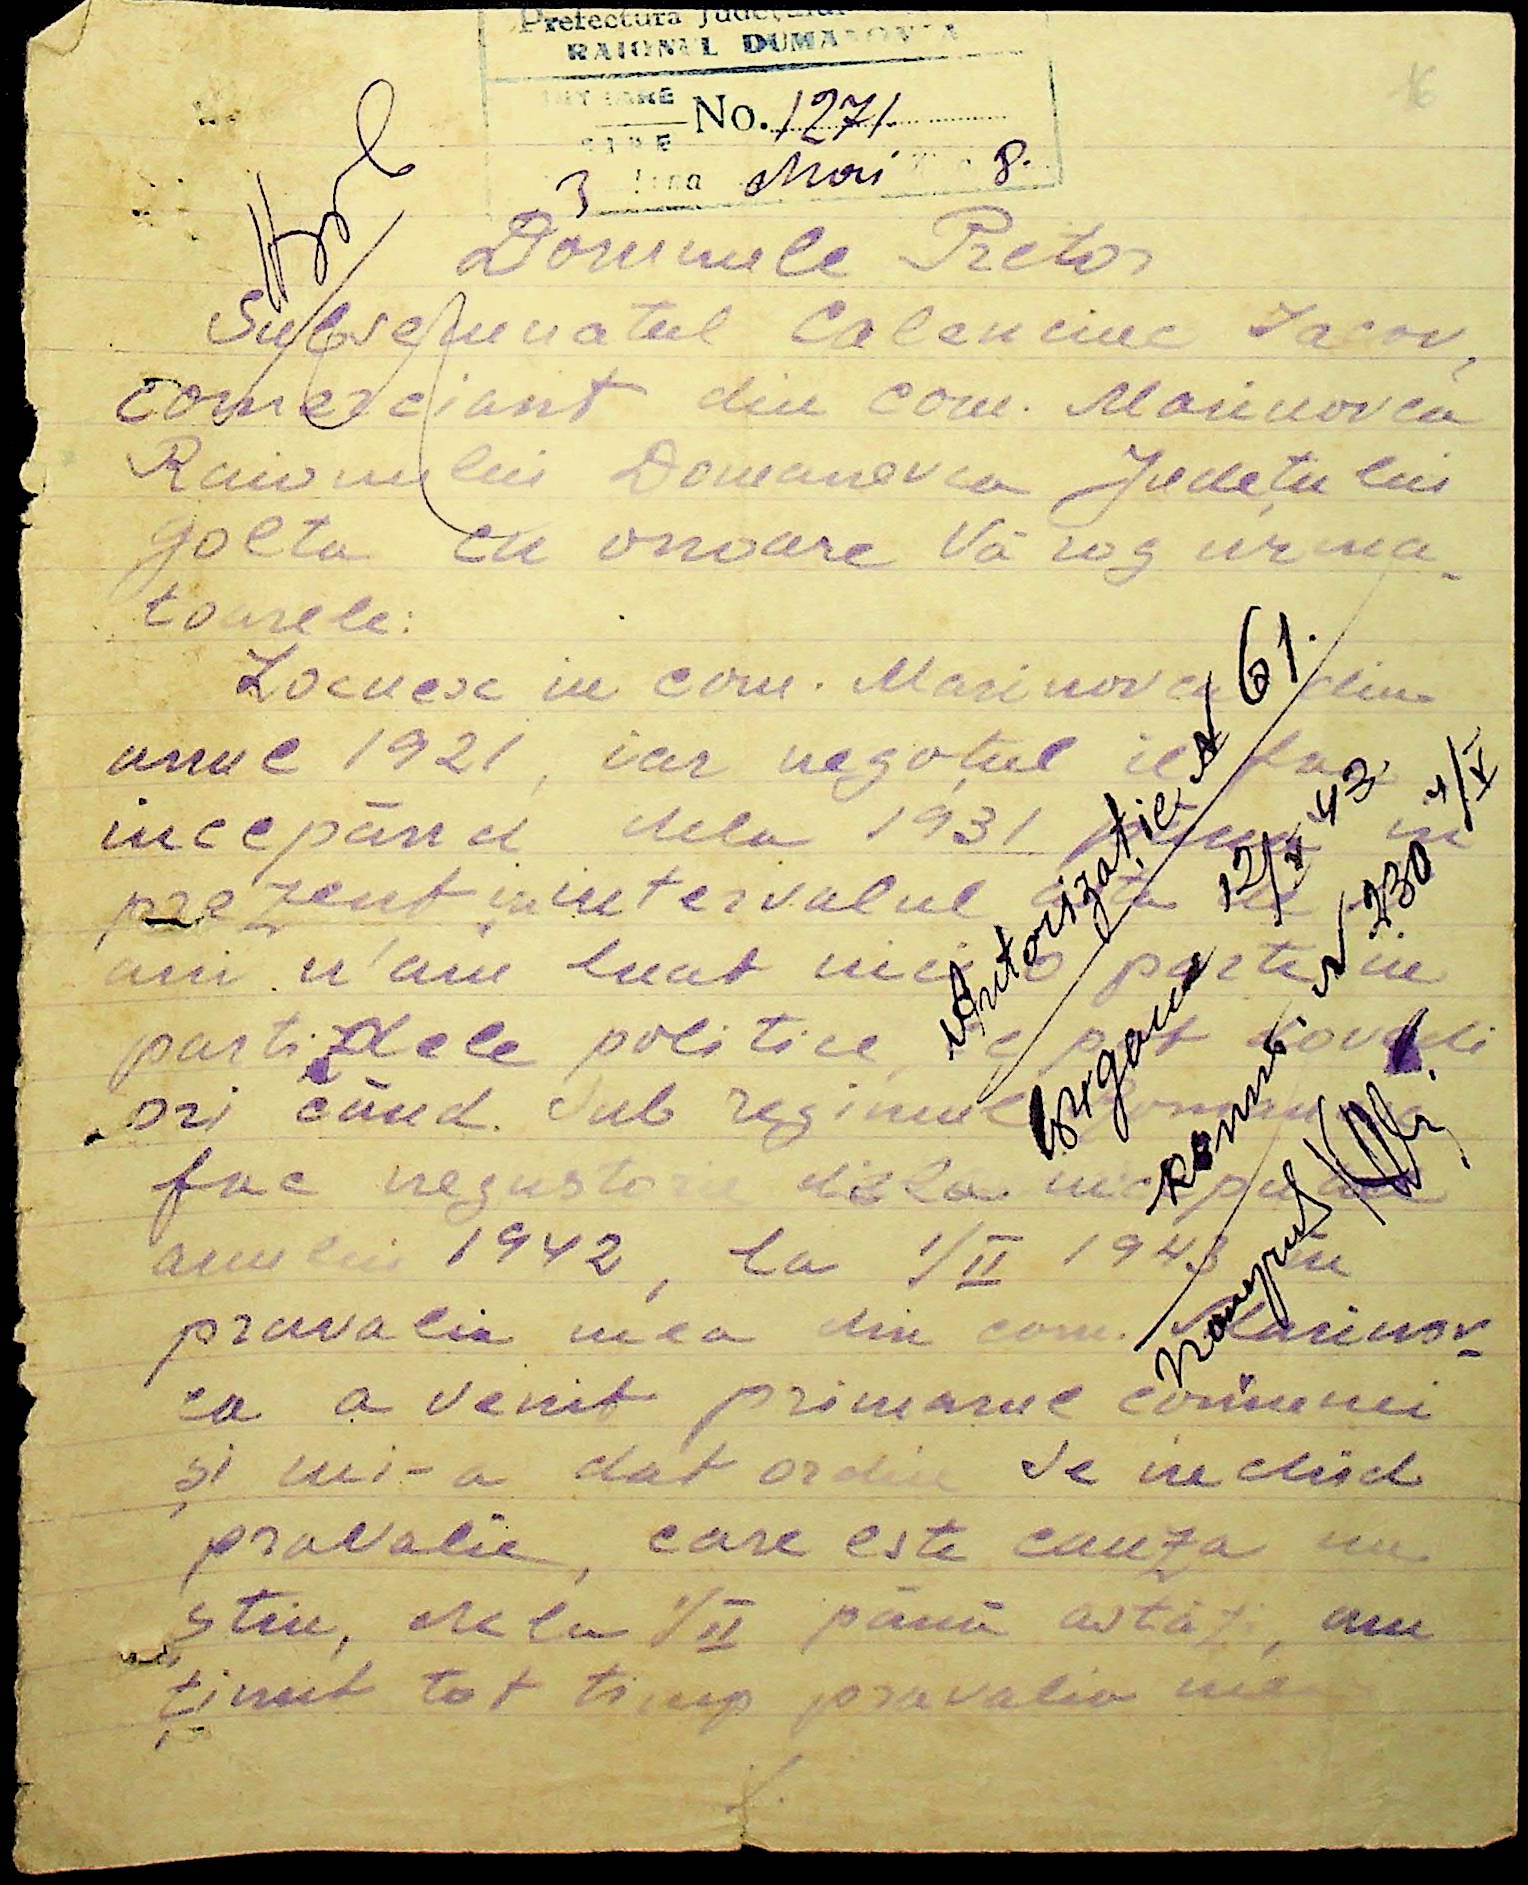 Prefectura Județului
RAIONUL DUMANOVCA
No. 1271
3 Mai 8.
16
Domnule Pretor
Subsemnatul Calenciuc Iacov,
comerciant din com. Marinovca
Raionului Domanovca Județului
Golta cu onoare Vă rog urma-
toarele:
Locuesc in com. Marinovca din
anul 1921, iar negoțul il fac
incepând dela 1931 până in
prezent, in intervalul ăsta de
ani n'am luat nici o parte in
partidele politice, se pot dovedi
ori când. Sub regimul
fac negustorie dela inceputul
anului 1942, la 1/II 1943 in
pravalia mea din com. Marinov-
ca a venit primarul comunei
și mi-a dat ordin se inchid
pravalia, care este cauza nu
stiu, dela 1/II până astăzi, am
ținut tot timp pravalia
Autorizatie N 61.
12/V 43
N 230 4/V